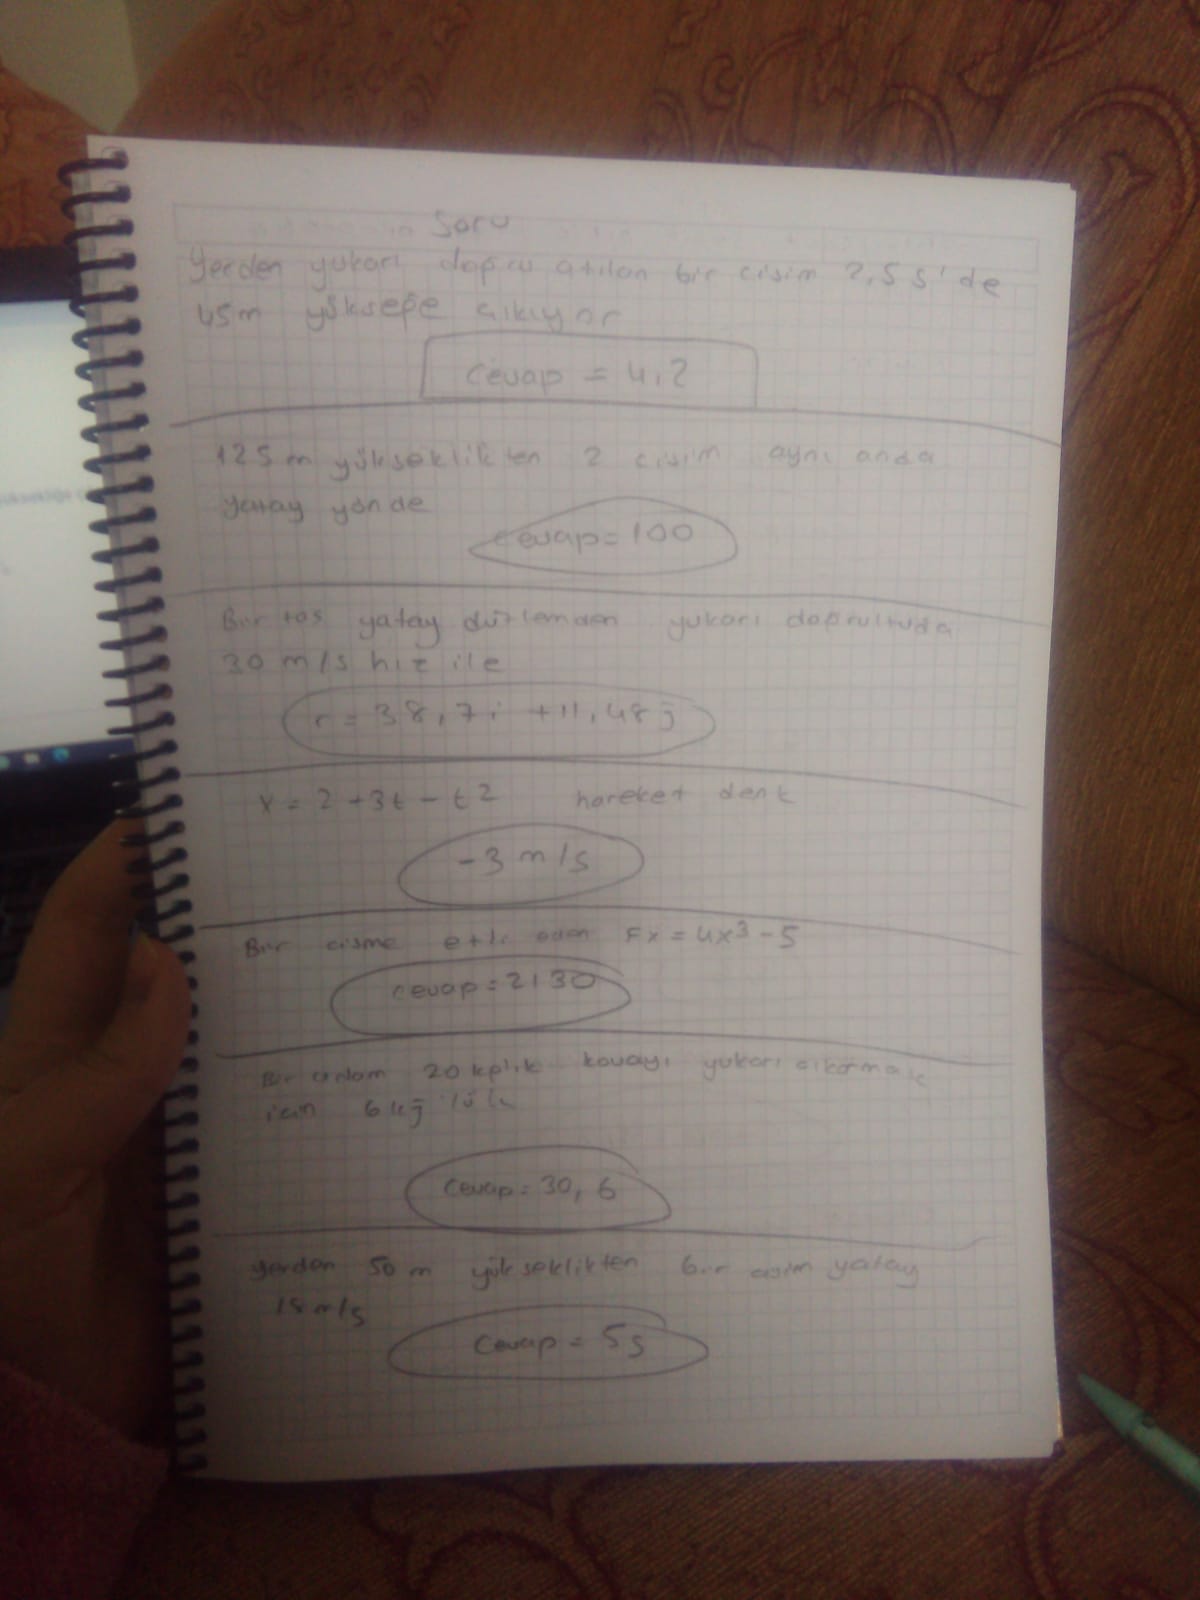 Soru
Yerden yukarı doğru atılan bir cisim 2,5 s'de
45m yükseğe çıkıyor
Cevap = 4,2
125m yükseklikten 2 cisim aynı anda
yatay yönde
cevap = 100
Bir taş yatay düzlemden yukarı doğrultuda
30 m/s hız ile
r = 38,7i + 11,48j
x = 2 + 3t - t2 hareket denk
-3 m/s
Bir cisme etki eden Fx = 4x3 - 5
cevap = 2130
Bir adam 20 kglık kovayı yukarı çıkarmak
için 6 kj lük
Cevap = 30,6
yerden 50 m yükseklikten bir cisim yatay
18 m/s
Cevap = 5s